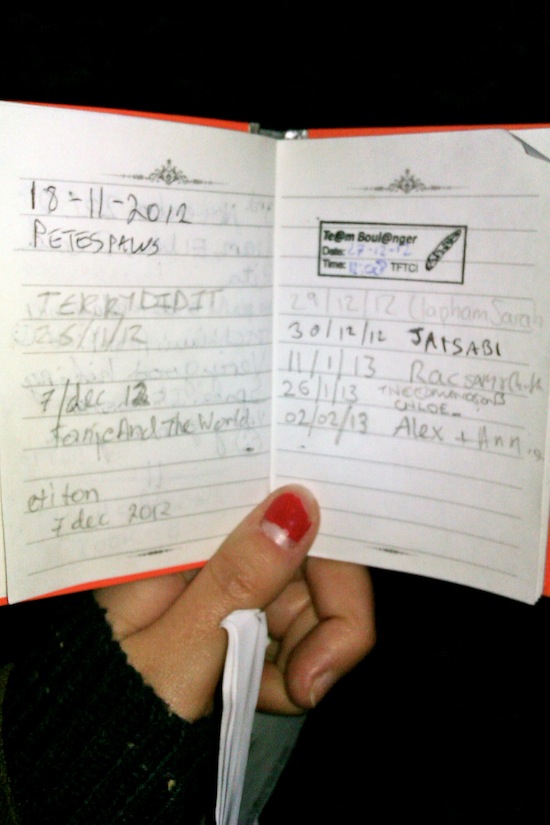 18-11-2012
PETESPAWS
JERRYDIDIT
26/11/12
7/dec 12
And The World
otiton
7 dec 2012
Te@m Boul@nger
Date: 27-12-12
Time: TFTC!
29/12/12 ClaphamSarah
30/12/12 JATSABI
11/1/13
26/1/13 THEEDMUNDSONS
CHLOE
02/02/13 Alex + Ann